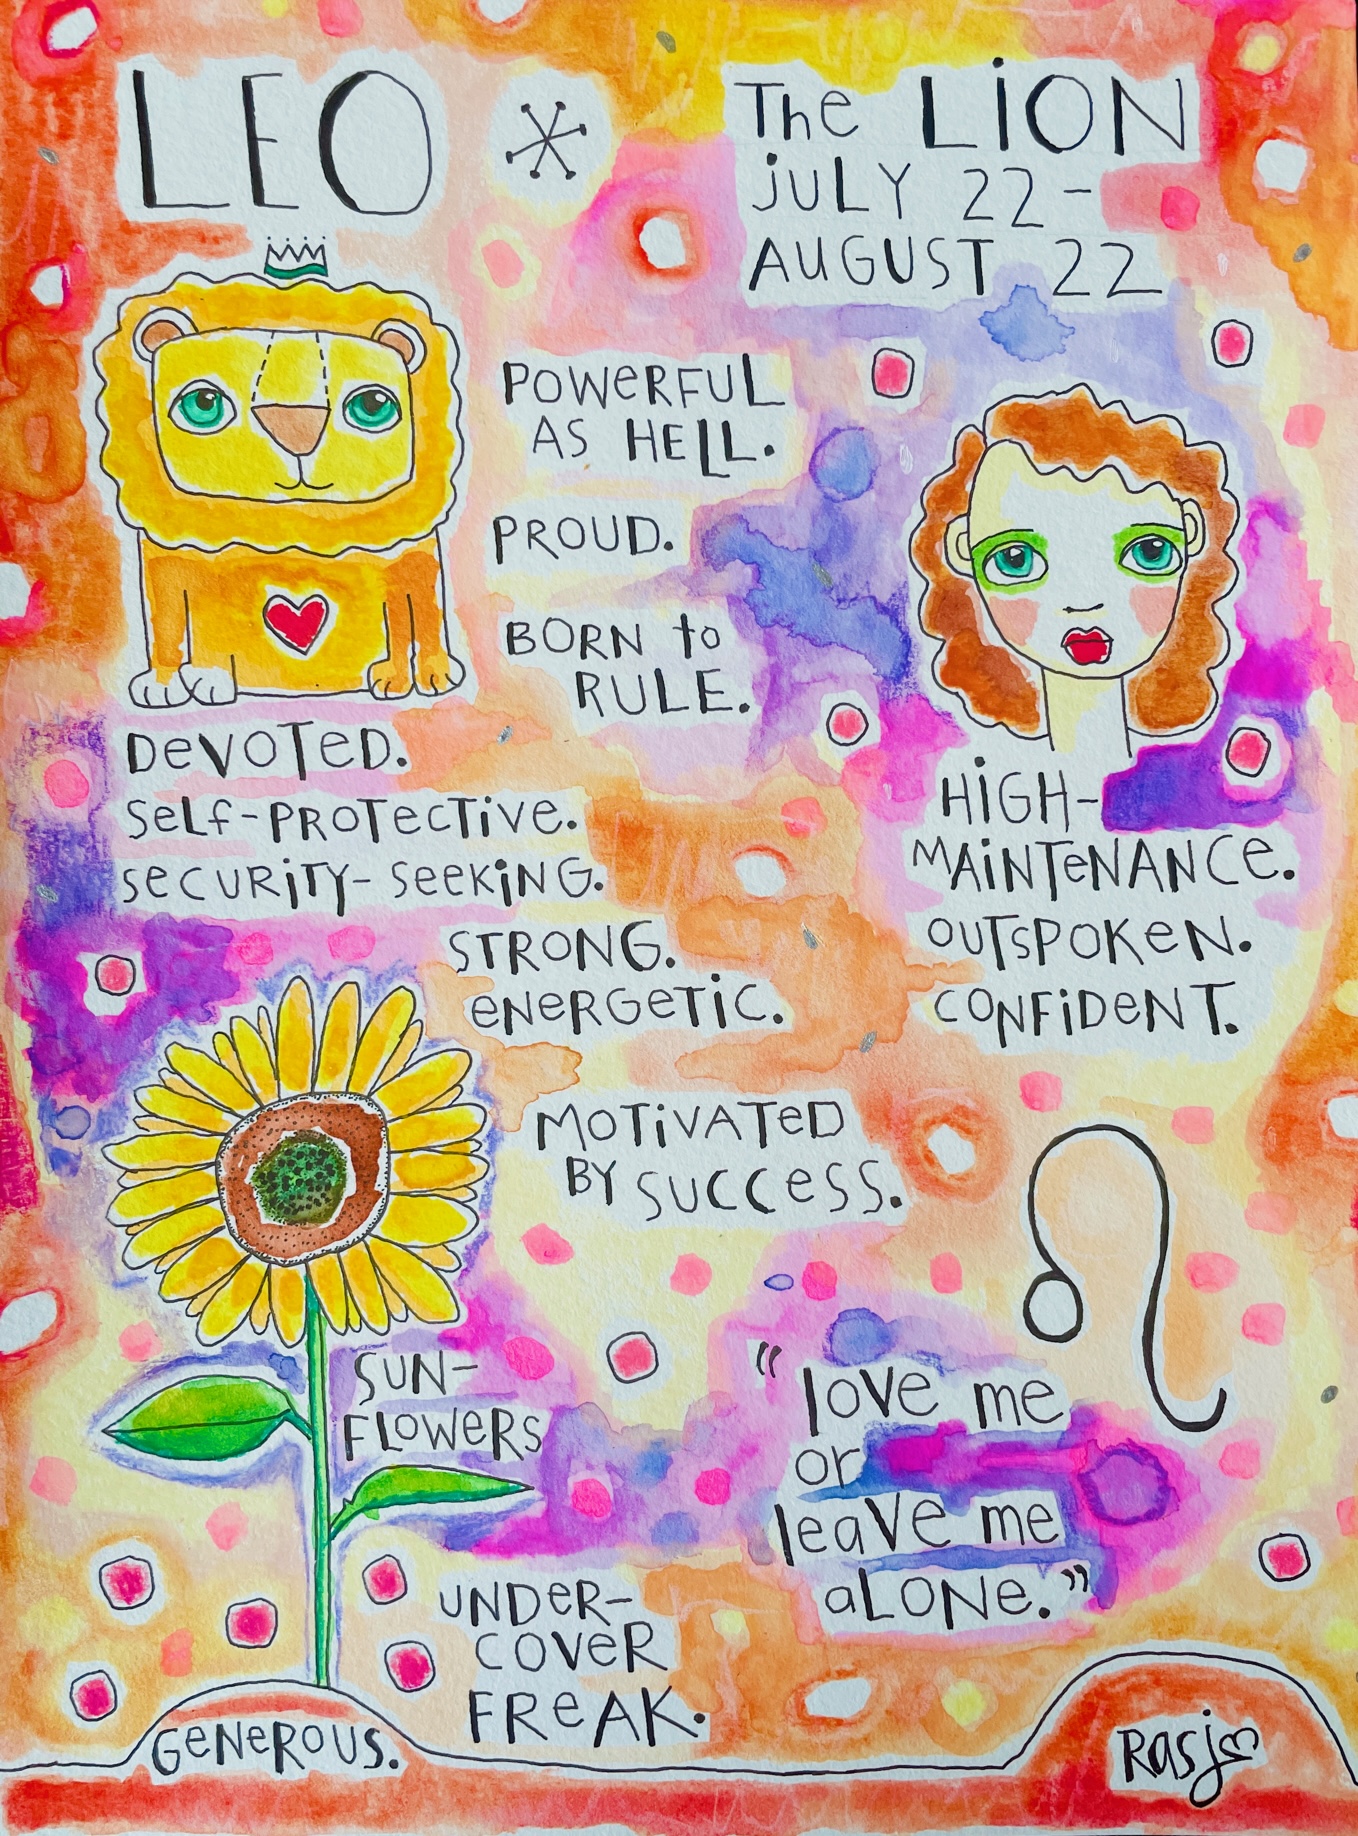 LEO
The LiON
jULY 22-
AUGUST 22
POWeRFUL
AS HELL.
PROUD.
BORN to
RULE.
DeVOTeD.
SeLf-PROTeCTiVe.
SeCURiTY-SeeKiNG.
STRONG.
eNeRGeTiC.
HiGH-
MAiNTeNANCe.
OUTSPOKeN.
CONFiDeNT.
MOTiVATeD
BY SUCCeSS.
SUN-
FLOWeRS
"love me
or
leave me
aLONe."
UNDeR-
COVeR
FReAK.
GeNeROUS.
RASj